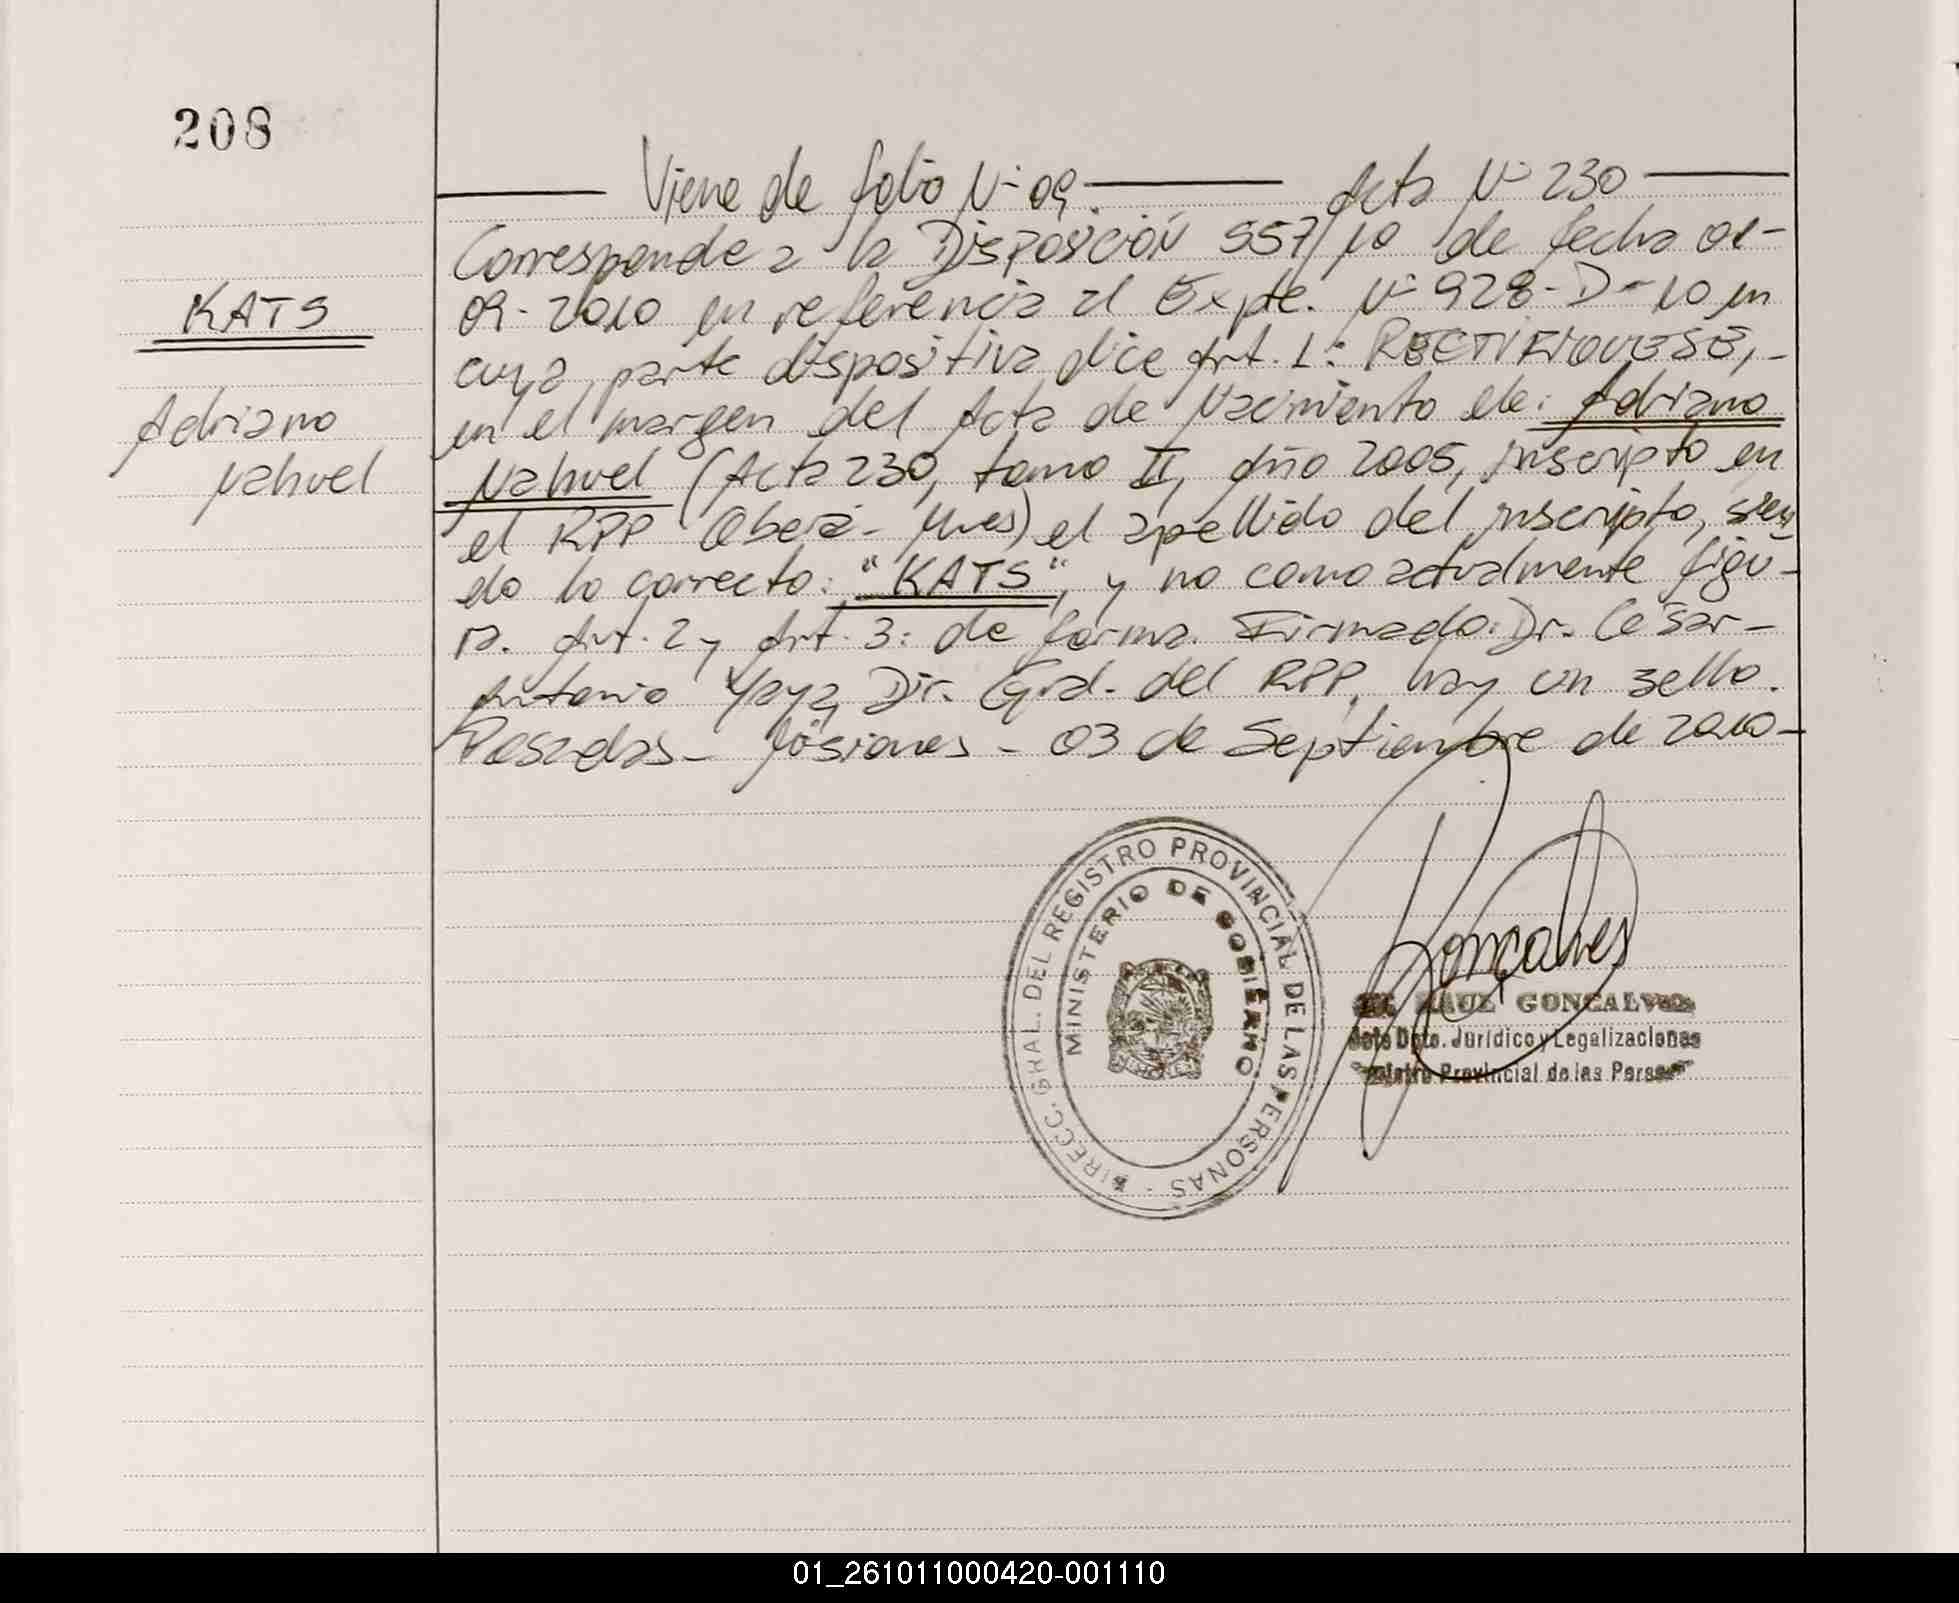 208
Viene de folio Nº 09. Acta Nº 230
Corresponde a la DISPOSICIÓN 557/10 de fecha 01-
09-2010 en referencia al Expte. Nº 928-D-10 en
KATS
cuya parte dispositiva dice Art. 1: RECTIFIQUESE,-
Adriano
en el margen del Acta de Nacimiento de: Adriano
Nahuel
Nahuel (Acta 230, tomo II, Año 2005, inscripto en
el RPP Oberá - Mnes) el apellido del inscripto, sien
do lo correcto: "KATS", y no como actualmente figu-
ra. Art. 2 y Art. 3: de forma. Firmado: Dr. César-
Antonio Yaya, Dir. Gral. del RPP, hay un sello.
Posadas - Misiones - 03 de Septiembre de 2010-
DIRECC. GRAL. DEL REGISTRO PROVINCIAL DE LAS PERSONAS -
MINISTERIO DE GOBIERNO
Gonçalves
RAUL GONCALVES
Dpto. Jurídico y Legalizaciones
Provincial de las Personas
01_261011000420-001110